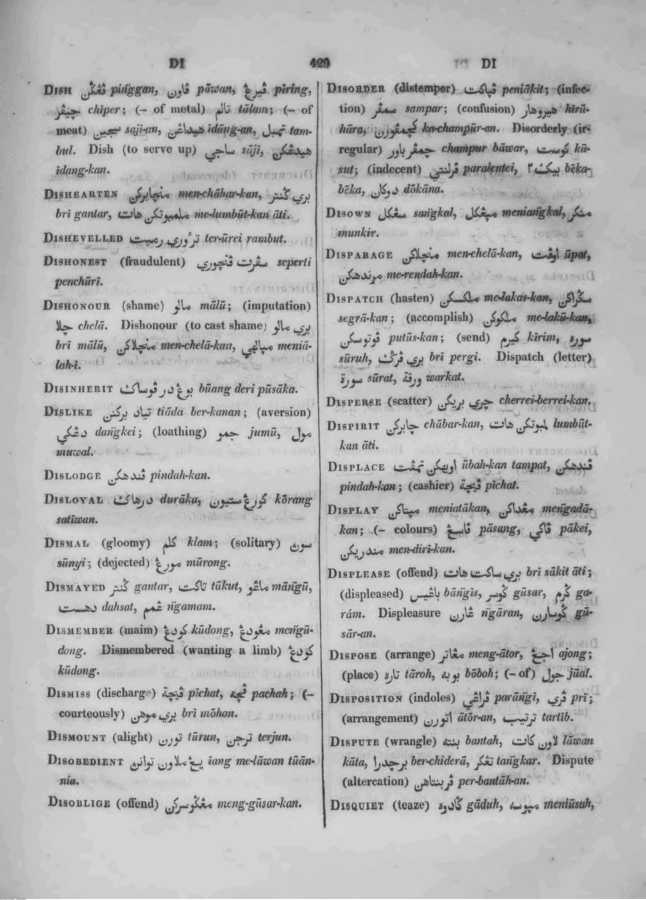 DI 429 DI
DISH ڤڠڬن pinggan, ڤاون pāwan, ڤيرڠ piring,
چيڤر chīper; (– of metal) تالم tālam; (– of
meat) سجين saji-an, هيداڠن idāng-an, تمبل tam-
bul. Dish (to serve up) ساجي sāji, هيدڠكن
idang-kan.
DISHEARTEN منچابركن men-chābar-kan, بري ڬنتر
bri gantar, ملمبوتكن هات me-lumbūt-kan āti.
DISHEVELLED تر اوري رمبت ter-ūrei rambut.
DISHONEST (fraudulent) سڤرت ڤنچوري seperti
penchūri.
DISHONOUR (shame) مالو mālū; (imputation)
چلا chelā. Dishonour (to cast shame) بري مالو
bri mālū, منچلاكن men-chelā-kan, meniā-
lah-i.
DISINHERIT بوڠ در ڤوساك būang deri pūsāka.
DISLIKE تياد بركنن tiāda ber-kanan; (aversion)
دڠكي dangkei; (loathing) جمو jumū, مول
muwal.
DISLODGE ڤندهكن pindah-kan.
DISLOYAL درهاك durāka, كورڠ ستيون kōrang
satīwan.
DISMAL (gloomy) كلم klam; (solitary) سوڽي
sūnyi; (dejected) مورڠ mūrong.
DISMAYED ڬنتر gantar, تاكت tākut, ماڠو māngū,
دهست dahsat, غمم ngamam.
DISMEMBER (maim) كودڠ kūdong, مڠودڠ mengū-
dong. Dismembered (wanting a limb) كودڠ
kūdong.
DISMISS (discharge) ڤيچة pichat, ڤچه pachah; (–
courteously) بري موهن bri mōhon.
DISMOUNT (alight) تورن tūrun, ترجن terjun.
DISOBEDIENT يڠ ملاون توانن iang me-lāwan tūān-
nia.
DISOBLIGE (offend) مڠڬوسركن meng-gūsar-kan.
DISORDER (distemper) ڤڽاكت peniākit; (infec-
tion) سمڤر sampar; (confusion) هيروهار hirū-
hāra, كچمڤورن ka-champūr-an. Disorderly (ir-
regular) چمڤر باور champur bāwar, كوست kū-
sut; (indecent) ڤرلنتي paralentei, بيك٢ bēka-
bēka, دوكان dōkāna.
DISOWN سڠكل sangkal, مڽڠكل meniangkal, منكر
munkir.
DISPARAGE منچلاكن men-chelā-kan, اوڤت ūpat,
مرندهكن me-rendah-kan.
DISPATCH (hasten) ملكسكن me-lakas-kan, سڬراكن
segrā-kan; (accomplish) ملكوكن me-lakū-kan,
ڤوتوسكن putūs-kan; (send) كيرم kīrim, سوره
sūruh, بري ڤرڬي bri pergi. Dispatch (letter)
سورة sūrat, ورقة warkat.
DISPERSE (scatter) چري بريكن cherrei-berrei-kan.
DISPIRIT چابركن chābar-kan, لمبوتكن هات lumbūt-
kan āti.
DISPLACE اوبهكن تمڤت ūbah-kan tampat, ڤندهكن
pindah-kan; (cashier) ڤيچة pichat.
DISPLAY مڽتاكن meniatākan, مڠداكن mengadā-
kan; (– colours) ڤاسڠ pāsang, ڤاكي pākei,
مندريكن men-diri-kan.
DISPLEASE (offend) بري ساكت هات bri sākit āti;
(displeased) باڠيس bāngis, ڬوسر gūsar, ڬرم ga-
rám. Displeasure غارن ngāran, ڬوسارن gū-
sār-an.
DISPOSE (arrange) مڠاتر meng-ātor, اجڠ ajong;
(place) تاره tāroh, بوبه bōboh; (– of) جول jūal.
DISPOSITION (indoles) ڤراڠي parāngi, ڤري prī;
(arrangement) اتورن ātōr-an, ترتيب tartib.
DISPUTE (wrangle) بنته bantah, لاون كات lāwan
kāta, برچدرا ber-chiderā, تڠكر tangkar. Dispute
(altercation) ڤربنتاهن per-bantāh-an.
DISQUIET (teaze) ڬادوه gāduh, مڽوسه meniūsuh,